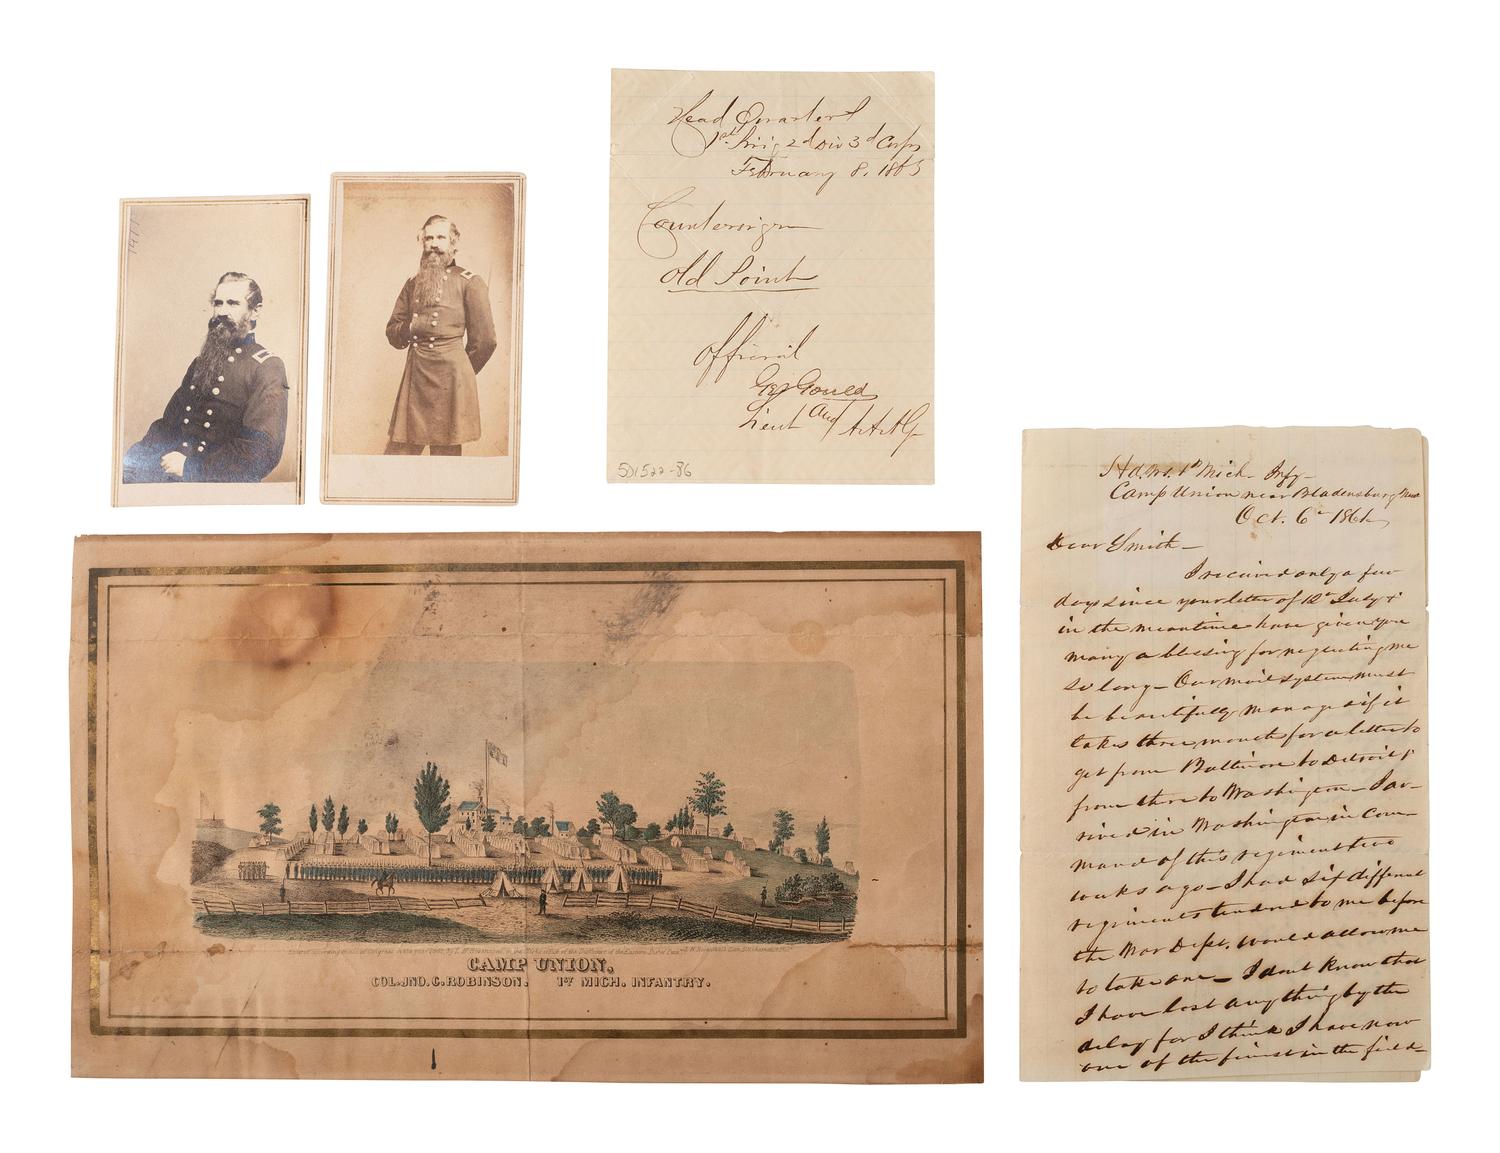 1911
Head Quarters
1st Brig 2d Div 3d Corps
February 8. 1863
Countersign
Old Point
Official
Gould
Lieut and A A A G
5D1522-86
CAMP UNION,
COL. JNO. C. ROBINSON. 1ST MICH. INFANTRY.
Hd. Qrs. 1st Mich. Infy
Camp Union near Bladensburg
Oct. 6th 1861
Dear Smith—
I received only a few
days since your letter of 12th July &
in the meantime have given you
many a blessing for neglecting me
so long— Our mail system must
be beautifully managed if it
takes three months for a letter to
get from Baltimore to Detroit &
from there to Washington— I ar-
rived in Washington in Com-
mand of this regiment two
weeks ago— I had six different
regiments tendered to me before
the War Dept. would allow me
to take one— I dont know that
I have lost anything by the
delay for I think I have now
one of the finest in the field—